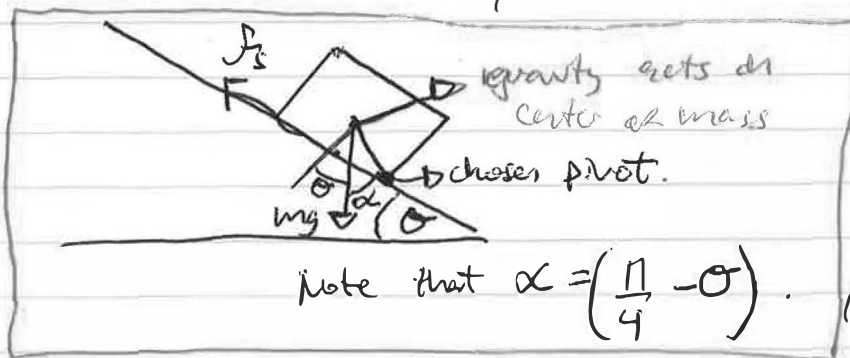 fs
gravity acts on
center of mass
chosen pivot.
θ
α
mg
θ
Note that α = (π/4 - θ).